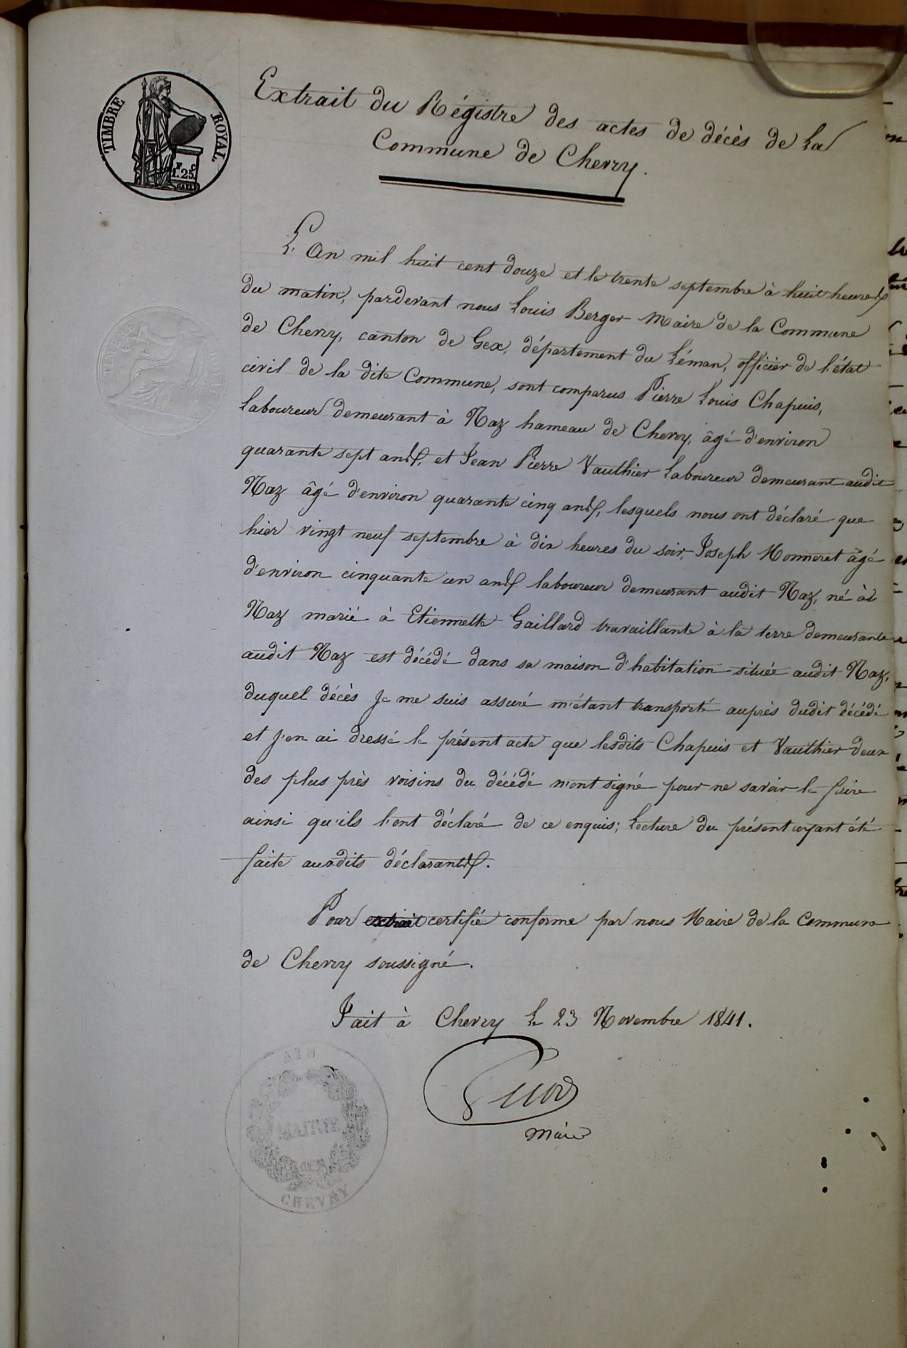 TIMBRE ROYAL
1.25
Extrait du Régistre des actes de décès de La
Commune de Chevry.
L'An mil huit cent douze et le trente septembre à huit heures
du matin, pardevant nous Louis Berger Maire de la Commune
de Chevry, canton de Gex, département du Léman, officier de l'état
civil de la dite Commune, sont comparus Pierre Louis Chapuis,
laboureur demeurant à Naz hameau de Chevry, âgé d'environ
quarante sept ans, et Jean Pierre Vaulthier laboureur demeurant audit
Naz âgé d'environ quarante cinq ans, lesquels nous ont déclaré que
hier vingt neuf septembre à dix heures du soir, Joseph Monneret âgé
d'environ cinquante un ans laboureur demeurant audit Naz, né à
Naz marié à Etiennette Gaillard travaillante à la terre demeurante
audit Naz est décédé dans sa maison d'habitation située audit Naz,
duquel décès je me suis assuré m'étant transporté auprès dudit décédé
et j'en ai dressé le présent acte que lesdits Chapuis et Vaulthier deux
des plus près voisins du décédé n'ont signé pour ne savoir le faire
ainsi qu'ils l'ont déclaré de ce enquis; Lecture du présent ayant été
faite auxdits déclarants.
Pour extrait certifié conforme par nous Maire de la Commune
de Chevry soussigné.
Fait à Chevry le 23 Novembre 1841.
Maire
AIN
MAIRIE
DE
CHEVRY